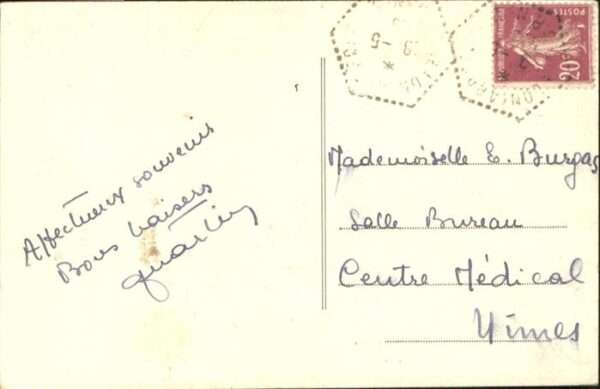 Affectueux souvenirs
Bons baisers
Mademoiselle E. Burgas
Salle Bureau
Centre Médical
Nimes
20c